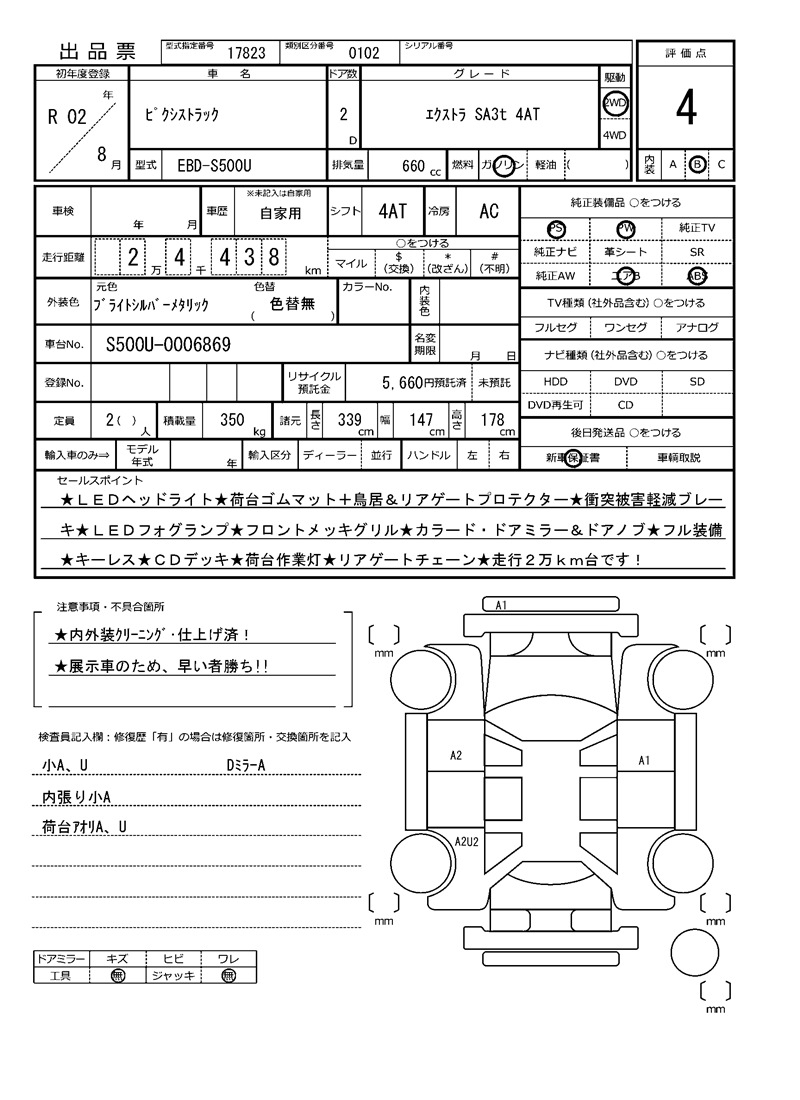 出品票 型式指定番号 17823 類別区分番号 0102 シリアル番号 評価点
初年度登録 車名 ドア数 グレード 駆動
R 02 年 8 月 ピクシストラック 2 D エクストラ SA3t 4AT 2WD 4WD 4
型式 EBD-S500U 排気量 660 cc 燃料 ガソリン 軽油 ( ) 内装 A B C
車検 年 月 車歴 ※未記入は自家用 自家用 シフト 4AT 冷房 AC 純正装備品 ○をつける
PS PW 純正TV
走行距離 2 万 4 千 4 3 8 km ○をつける マイル $ (交換) * (改ざん) # (不明) 純正ナビ 革シート SR
純正AW エアB ABS
外装色 元色 ブライトシルバーメタリック 色替 ( 色替無 ) カラーNo. 内装色 TV種類 (社外品含む) ○をつける
フルセグ ワンセグ アナログ
車台No. S500U-0006869 名変期限 月 日 ナビ種類 (社外品含む) ○をつける
登録No. リサイクル預託金 5,660円預託済 未預託 HDD DVD SD
DVD再生可 CD
定員 2( ) 人 積載量 350 kg 諸元 長さ 339 cm 幅 147 cm 高さ 178 cm 後日発送品 ○をつける
輸入車のみ⇒ モデル年式 年 輸入区分 ディーラー 並行 ハンドル 左 右 新車保証書 車輌取説
セールスポイント
★ＬＥＤヘッドライト★荷台ゴムマット＋鳥居＆リアゲートプロテクター★衝突被害軽減ブレー
キ★ＬＥＤフォグランプ★フロントメッキグリル★カラード・ドアミラー＆ドアノブ★フル装備
★キーレス★ＣＤデッキ★荷台作業灯★リアゲートチェーン★走行２万ｋｍ台です！
注意事項・不具合箇所
★内外装クリーニング・仕上げ済！
★展示車のため、早い者勝ち!!
検査員記入欄：修復歴「有」の場合は修復箇所・交換箇所を記入
小A、U Dミラ-A
内張り小A
荷台アオリA、U
ドアミラー キズ ヒビ ワレ
工具 無 ジャッキ 無
A1
mm mm
A2 A1
A2U2
mm mm
mm